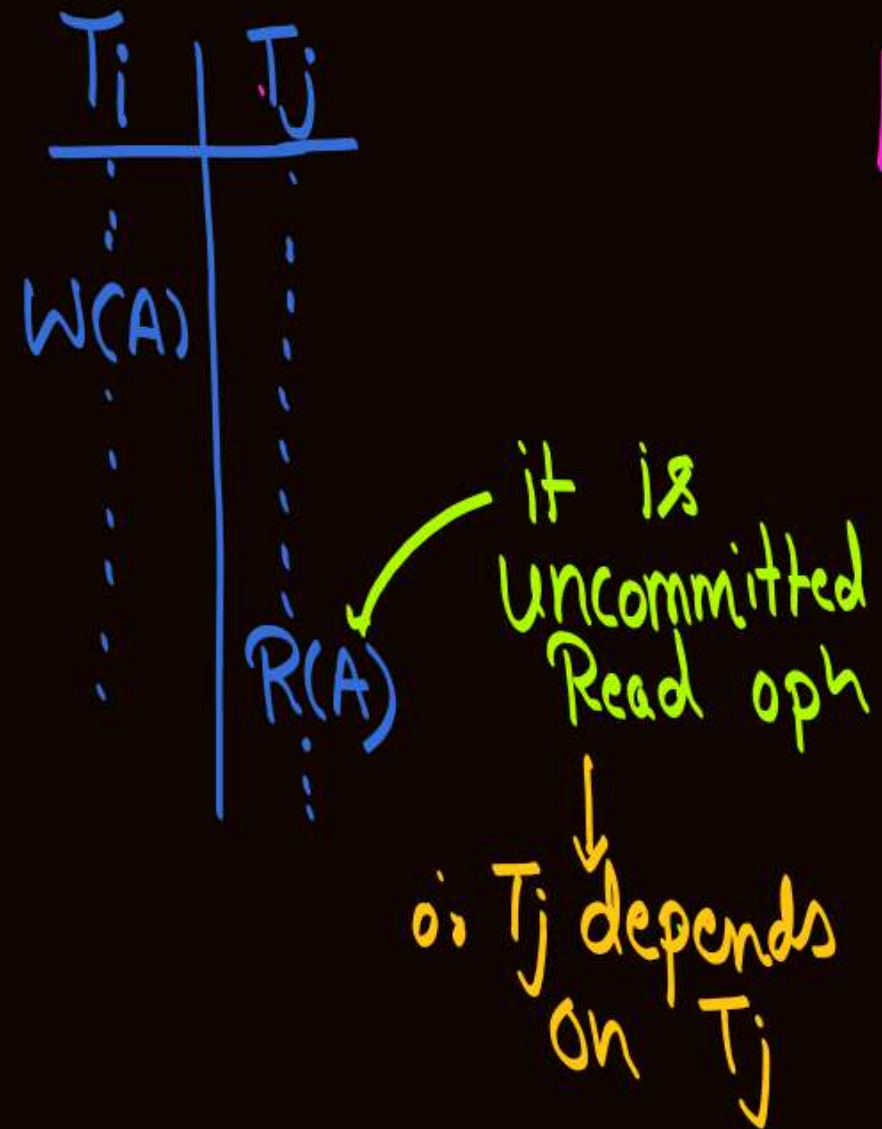 Ti Tj
W(A)
it is
uncommitted
R(A) Read opn
∴ Tj depends
on Tj